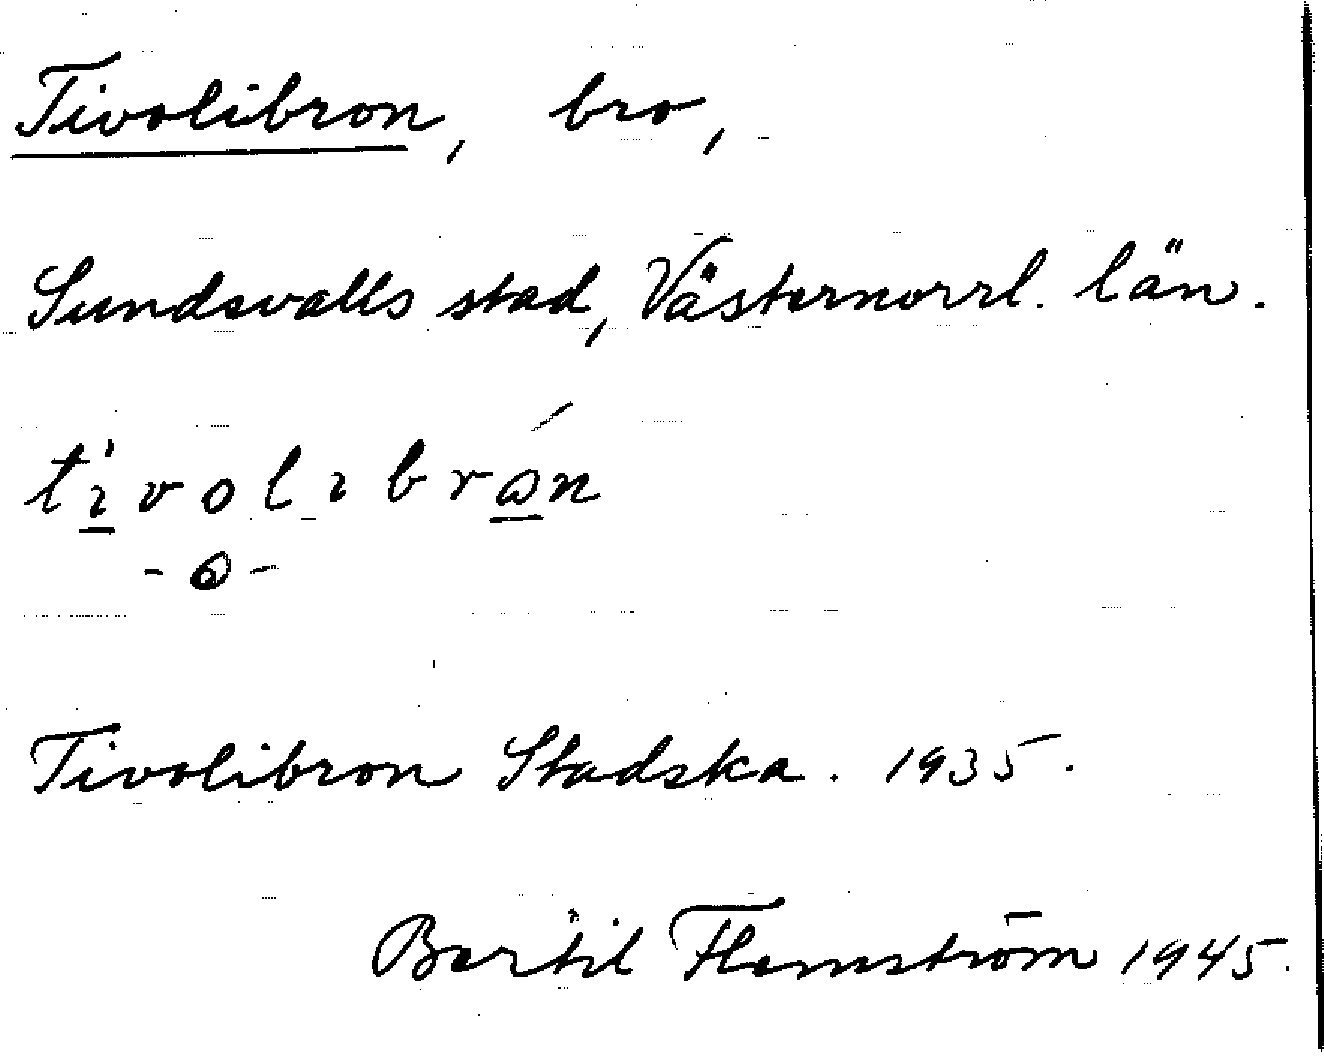 Tivolibron, bro,
Sundsvalls stad, Västernorrl. län.
tìvolıbrón
- o -
Tivolibron Stadska. 1935.
Bertil Flemström 1945.